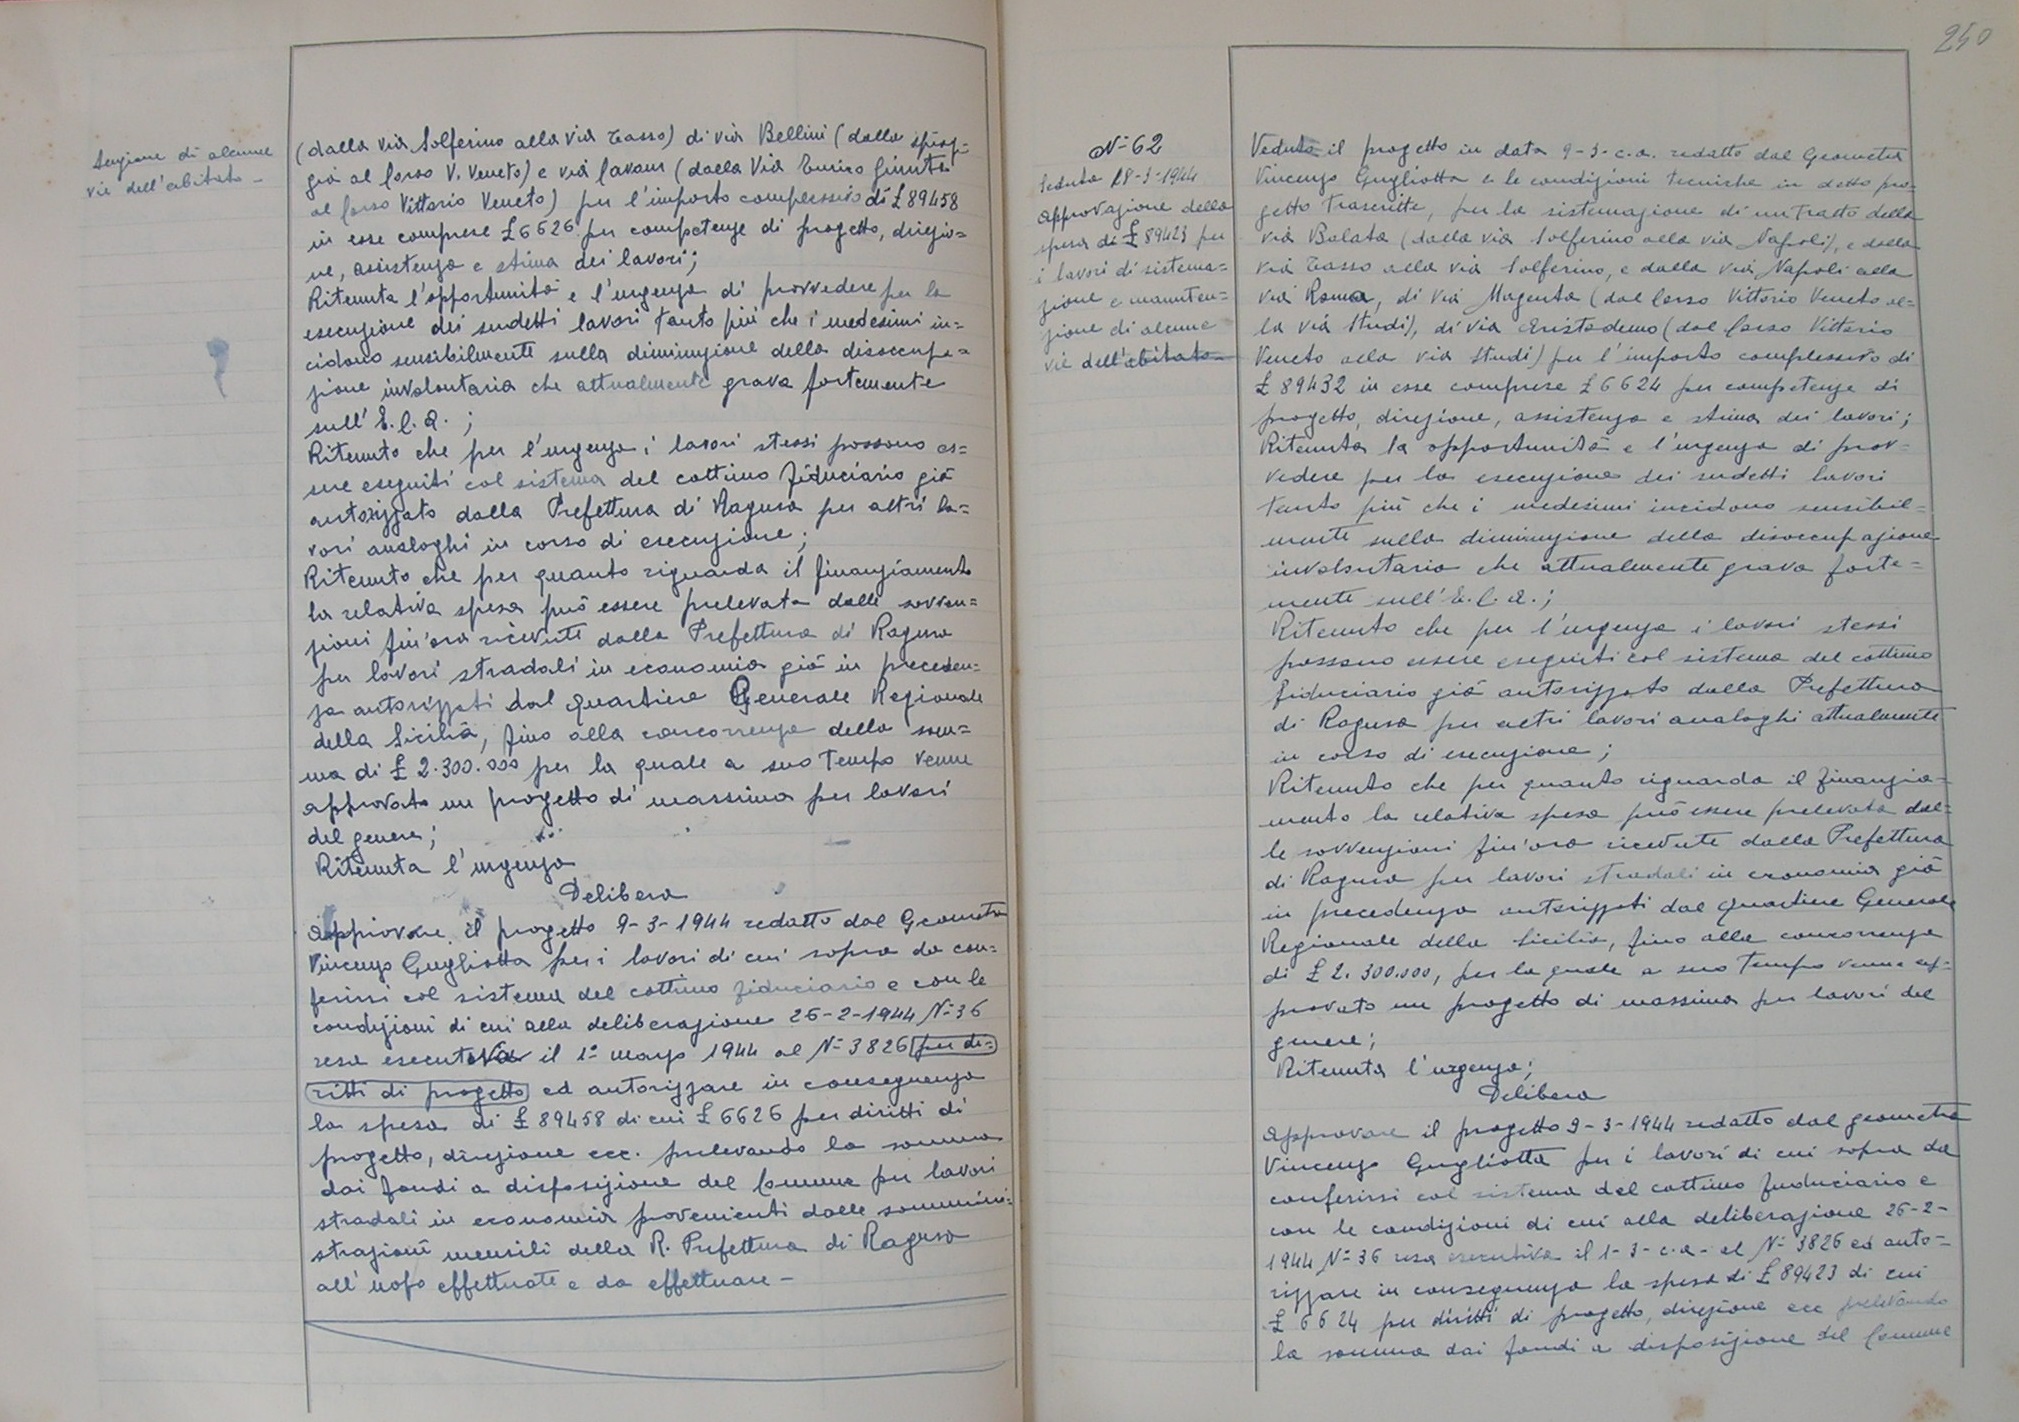 tenzione di alcune
vie dell'abitato -
(dalla via Solferino alla via Tasso) di via Bellini (dalla spiag-
gia al Corso V. Veneto) e via Cavour (dalla Via Enrico Giunta
al Corso Vittorio Veneto) per l'importo complessivo di £ 89458
in esse comprese £ 6626 per competenze di progetto, direzio=
ne, assistenza e stima dei lavori;
Ritenuta l'opportunità e l'urgenza di provvedere per la
esecuzione dei sudetti lavori tanto più che i medesimi in=
cidono sensibilmente sulla diminuzione della disoccupa=
zione involontaria che attualmente grava fortemente
sull'E.C.A. ;
Ritenuto che per l'urgenza i lavori stessi possono es=
sere eseguiti col sistema del cottimo fiduciario già
autorizzato dalla Prefettura di Ragusa per altri la=
vori analoghi in corso di esecuzione;
Ritenuto che per quanto riguarda il finanziamento
la relativa spesa può essere prelevata dalle sovven=
zioni fin'ora ricevute dalla Prefettura di Ragusa
per lavori stradali in economia già in preceden=
za autorizzati dal Quartiere Generale Regionale
della Sicilia, fino alla concorrenza della som=
ma di £ 2.300.000 per la quale a suo tempo venne
approvato un progetto di massima per lavori
del genere;
Ritenuta l'urgenza
Delibera
Approvare il progetto 9-3-1944 redatto dal Geometra
Vincenzo Gugliotta per i lavori di cui sopra da con=
ferirsi col sistema del cottimo fiduciario e con le
condizioni di cui alla deliberazione 26-2-1944 N=36
resa esecutiva il 1= marzo 1944 al N= 3826 per di=
ritti di progetto ed autorizzare in conseguenza
la spesa di £ 89458 di cui £ 6626 per diritti di
progetto, direzione ecc. prelevando la somma
dai fondi a disposizione del Comune per lavori
stradali in economia provenienti dalle sommini=
strazioni mensili della R. Prefettura di Ragusa
all'uopo effettuate e da effettuare -
250
N= 62
Seduta 18-3-1944
Approvazione della
spesa di £ 89423 per
i lavori di sistema=
zione e manuten=
zione di alcune
vie dell'abitato
Veduto il progetto in data 9-3-c.a. redatto dal Geometra
Vincenzo Gugliotta e le condizioni tecniche in detto pro=
getto trascritte, per la sistemazione di un tratto della
via Balata (dalla via Solferino alla via Napoli), e dalla
via Tasso alla via Solferino, e dalla via Napoli alla
via Roma, di via Magenta (dal Corso Vittorio Veneto al=
la via Studi), di via Aristodemo (dal Corso Vittorio
Veneto alla via Studi) per l'importo complessivo di
£ 89432 in esse comprese £ 6624 per competenze di
progetto, direzione, assistenza e stima dei lavori;
Ritenuta la opportunità e l'urgenza di prov=
vedere per la esecuzione dei sudetti lavori
tanto più che i medesimi incidono sensibil=
mente sulla diminuzione della disoccupazione
involontaria che attualmente grava forte=
mente sull'E.C.A.;
Ritenuto che per l'urgenza i lavori stessi
possono essere eseguiti col sistema del cottimo
fiduciario già autorizzato dalla Prefettura
di Ragusa per altri lavori analoghi attualmente
in corso di esecuzione;
Ritenuto che per quanto riguarda il finanzia=
mento la relativa spesa può essere prelevata dal=
le sovvenzioni fin'ora ricevute dalla Prefettura
di Ragusa per lavori stradali in economia già
in precedenza autorizzati dal Quartiere Generale
Regionale della Sicilia, fino alla concorrenza
di £ 2.300.000, per la quale a suo tempo venne ap=
provato un progetto di massima per lavori del
genere;
Ritenuta l'urgenza;
Delibera
Approvare il progetto 9-3-1944 redatto dal geometra
Vincenzo Gugliotta per i lavori di cui sopra da
conferirsi col sistema del cottimo fiduciario e
con le condizioni di cui alla deliberazione 26-2-
1944 N= 36 resa esecutiva il 1-3-c.a- al N= 3826 ed auto=
rizzare in conseguenza la spesa di £ 89423 di cui
£ 6624 per diritti di progetto, direzione ecc prelevando
la somma dai fondi a disposizione del Comune